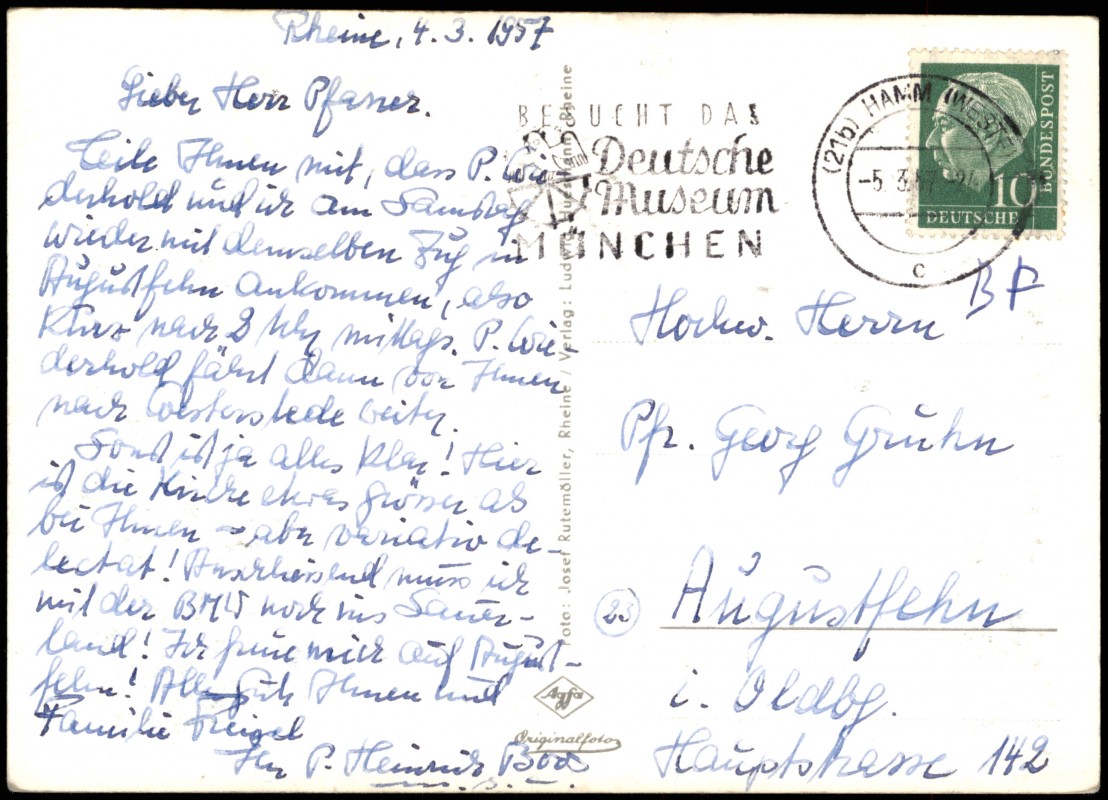 Rheine, 4. 3. 1957
Lieber Herr Pfarrer.
Teile Ihnen mit, dass P. Wie-
derhold und ich am Samstag
wieder mit demselben Zug in
Augustfehn ankommen, also
kurz nach 2 Uhr mittags. P. Wie-
derhold fährt dann von Ihnen
nach Westerstede weiter.
Sonst ist ja alles klar! Hier
ist die Kirche etwas grösser als
bei Ihnen - aber variatio de-
lectat! Anscheinend muss ich
mit der BMW noch ins Sauer-
land! Ich freue mich auf August-
fehn! Alles Gute Ihnen und
Familie
Ihr P. Heinrich
Foto: Josef Rutemöller, Rheine / Verlag: Ludwig Rheine
Agfa
Originalfoto
BESUCHT DAS
Deutsche
Museum
MÜNCHEN
(21b) HAMM (WESTF)
-5. 3. 57
c
10
DEUTSCHE
BUNDESPOST
BF
Hochw. Herrn
Pfr. Georg Gruhn
(23) Augustfehn
i. Oldbg.
Hauptstrasse 142